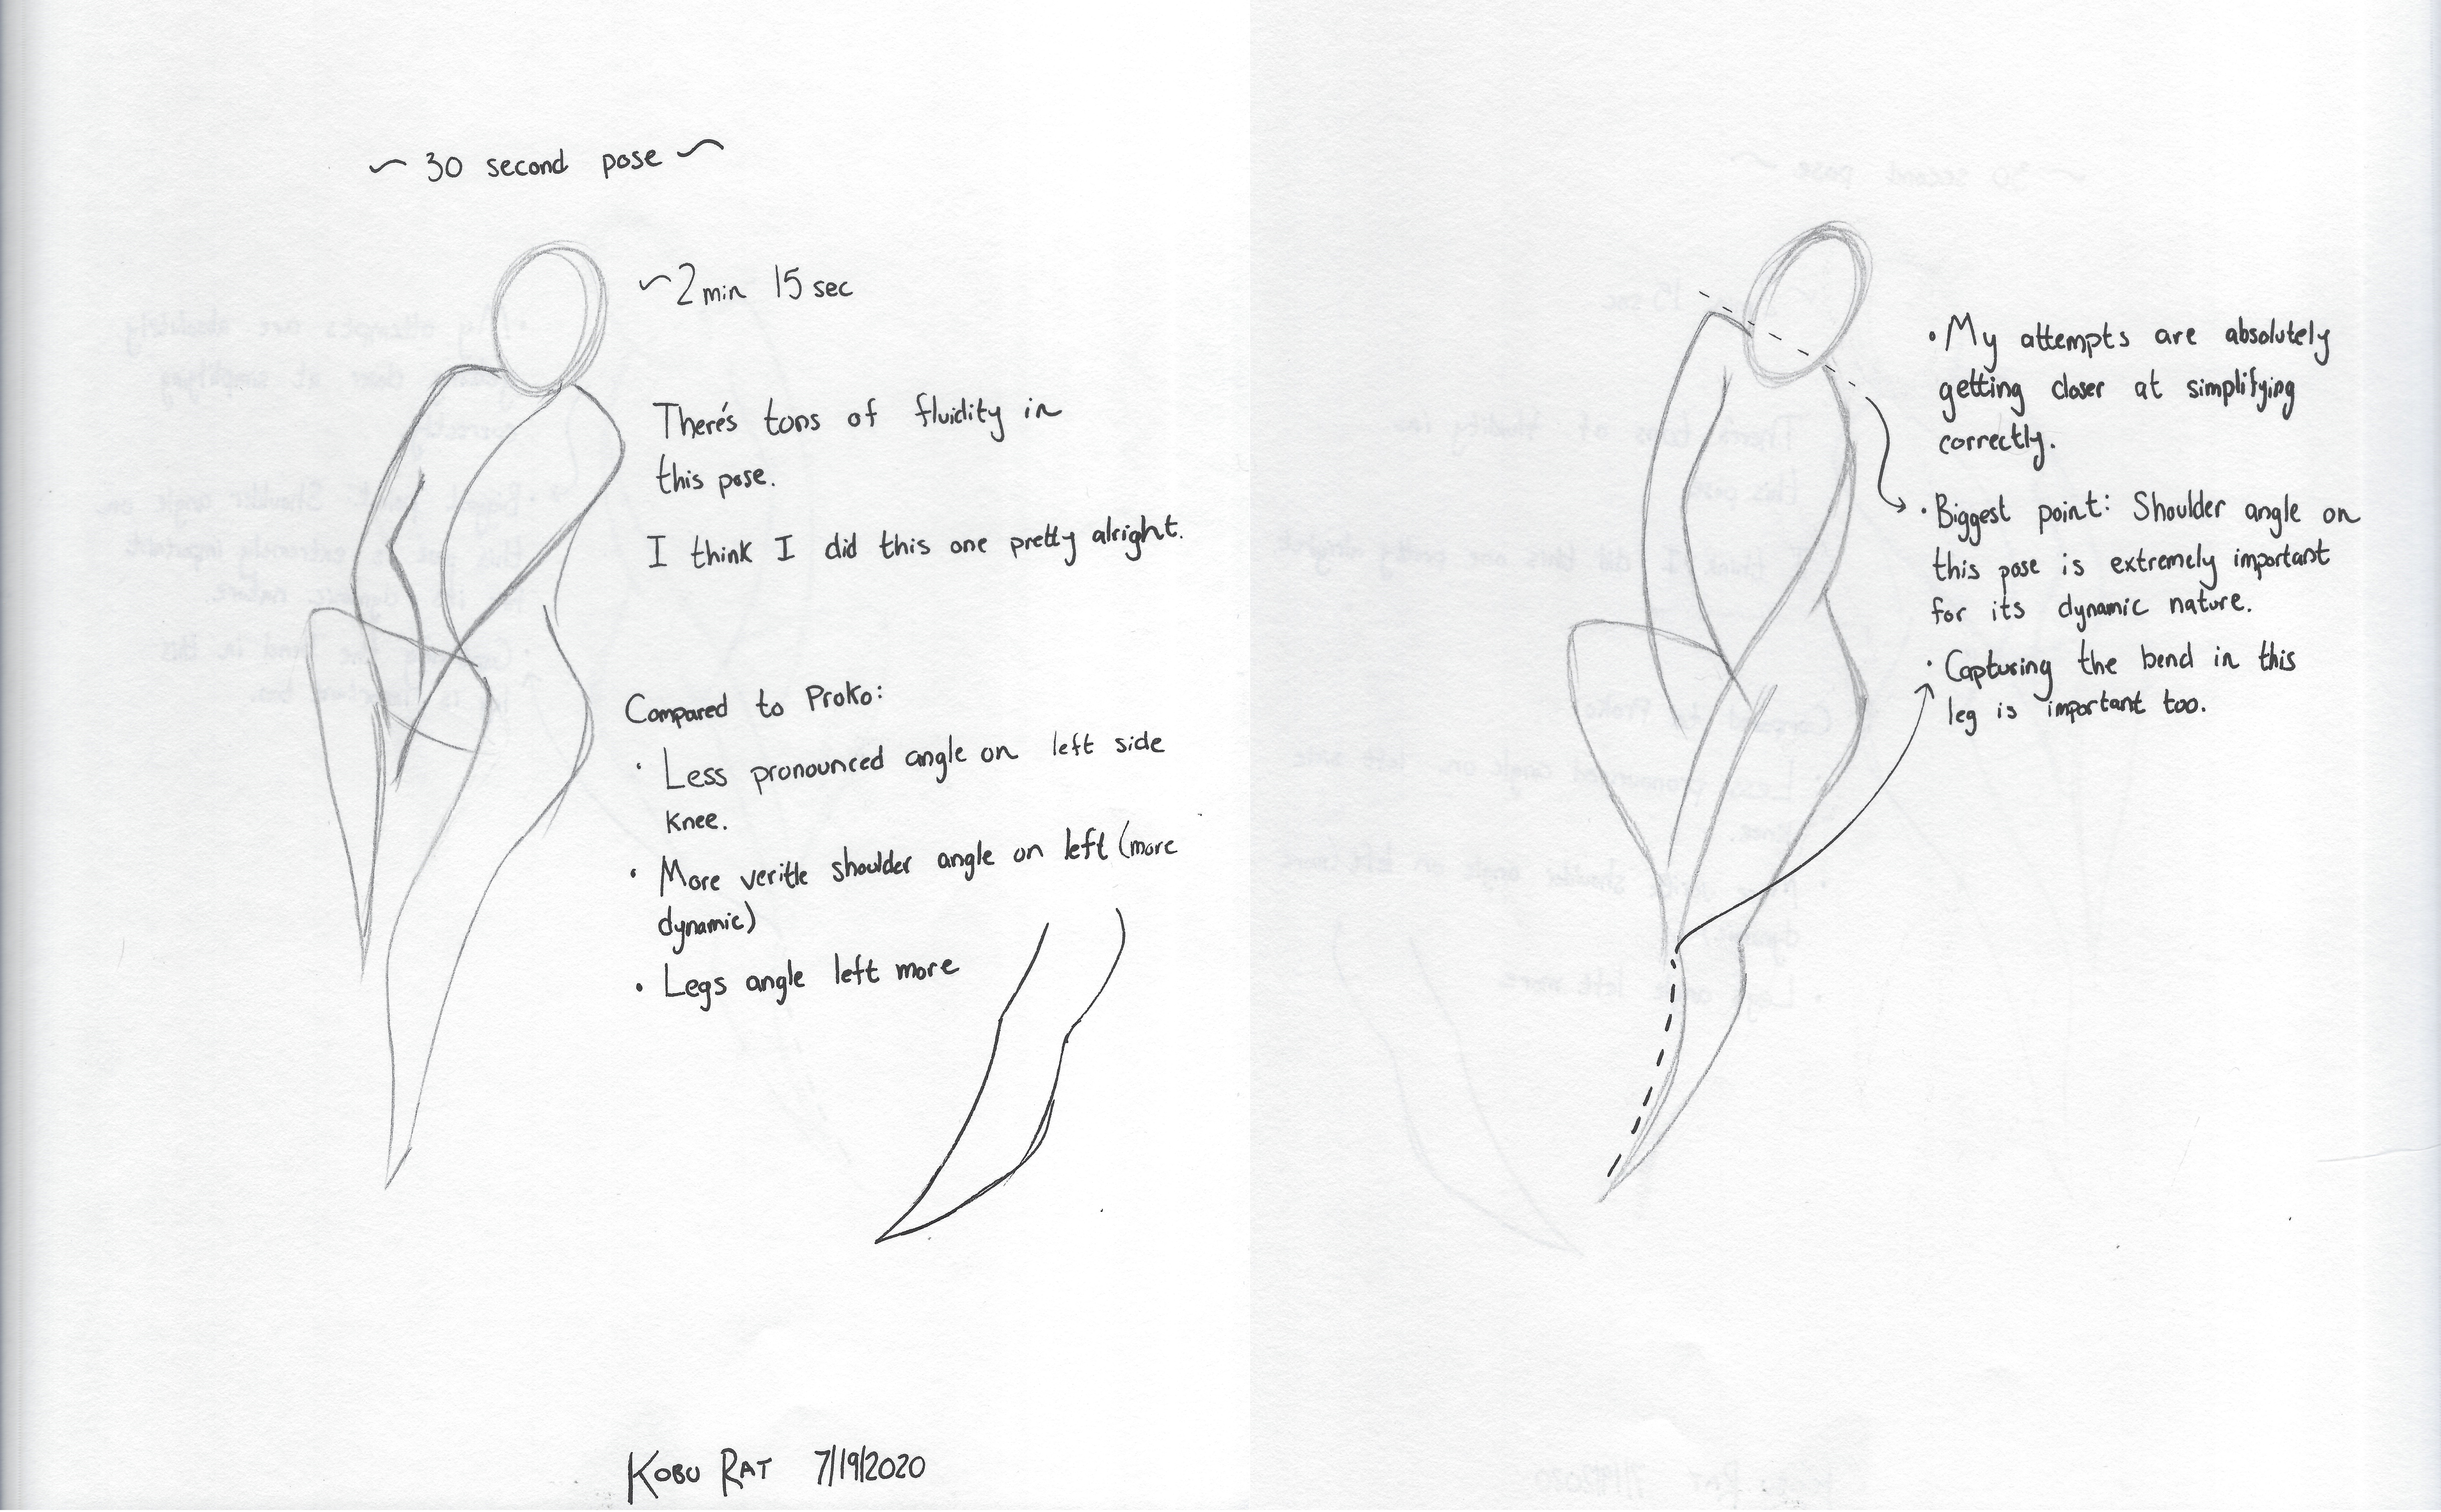 ~ 30 second pose ~
~2 min 15 sec
There's tons of fluidity in
this pose.
I think I did this one pretty alright.
Compared to Proko:
· Less pronounced angle on left side
knee.
· More veritle shoulder angle on left (more
dynamic)
· Legs angle left more
KOBU RAT 7/19/2020
· My attempts are absolutely
getting closer at simplifying
correctly.
· Biggest point: Shoulder angle on
this pose is extremely important
for its dynamic nature.
· Capturing the bend in this
leg is important too.